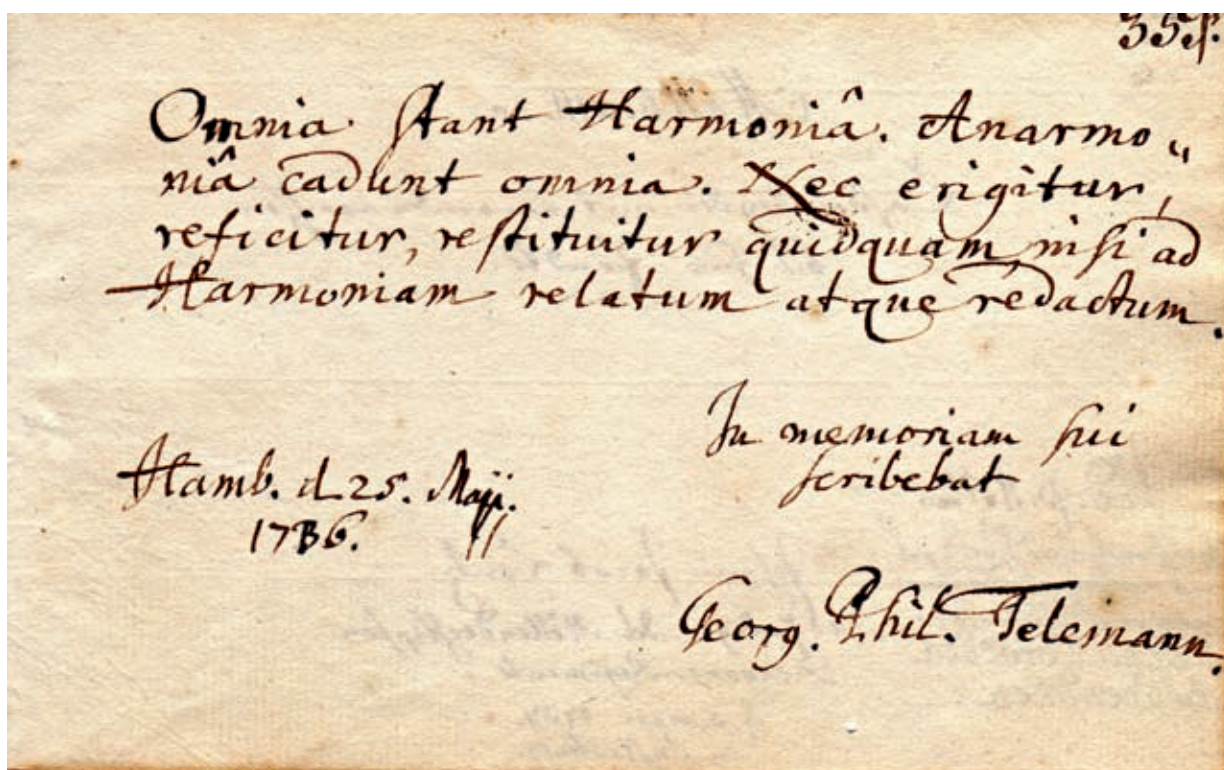 Omnia stant Harmoniâ. Anarmo„
niâ cadunt omnia. Nec erigitur,
reficitur, restituitur quidquam, nisi ad
Harmoniam relatum atque redactum.
In memoriam sui
scribebat
Hamb. d. 25. Maji.
1736.
Georg. Phil. Telemann.